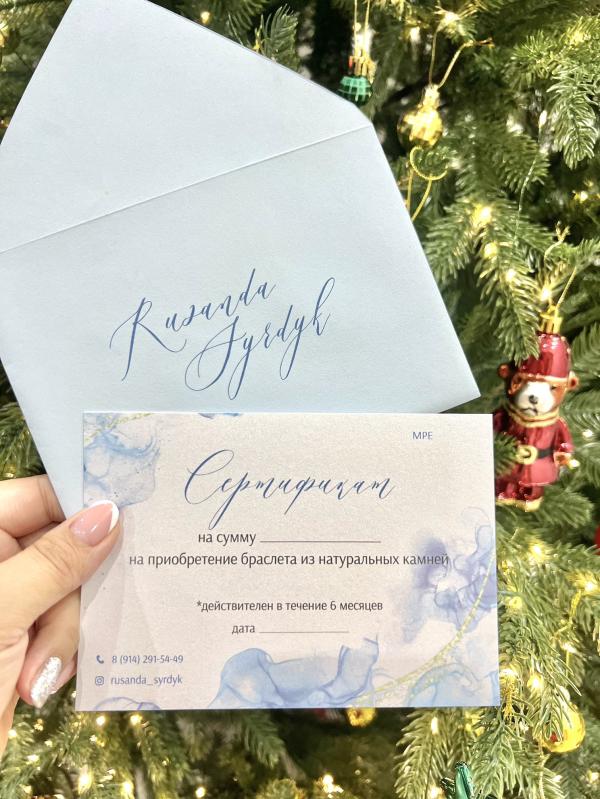 Rusanda
Syrdyk
МРЕ
Сертификат
на сумму
на приобретение браслета из натуральных камней
*действителен в течение 6 месяцев
дата
8 (914) 291-54-49
rusanda_syrdyk